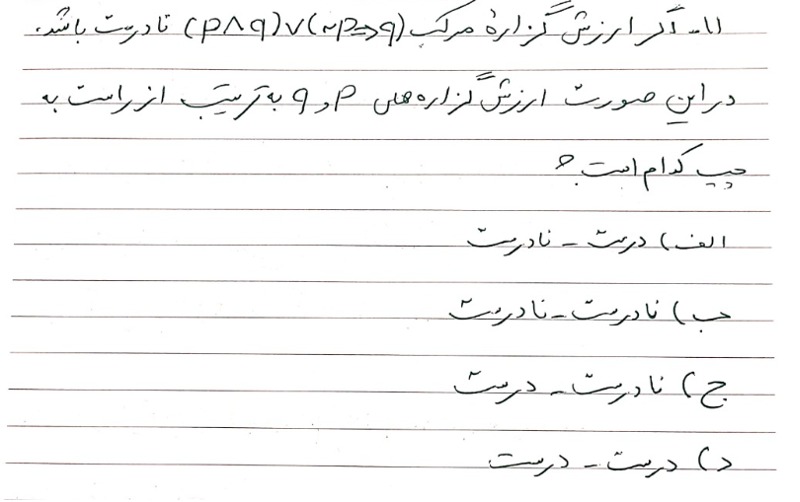 ۱۱- اگر ارزش گزارهٔ مرکب (p∧q)∨(~p⇒q) نادرست باشد،
در این صورت ارزش گزاره‌های p و q به ترتیب از راست به
چپ کدام است؟
الف) درست - نادرست
ب) نادرست - نادرست
ج) نادرست - درست
د) درست - درست